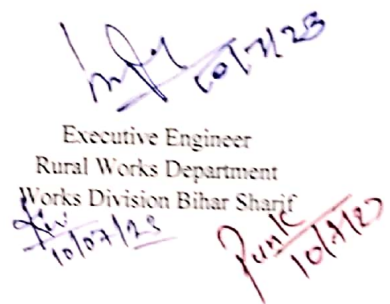 10/7/23
Executive Engineer
Rural Works Department
Works Division Bihar Sharif
10/07/23
10/7/23